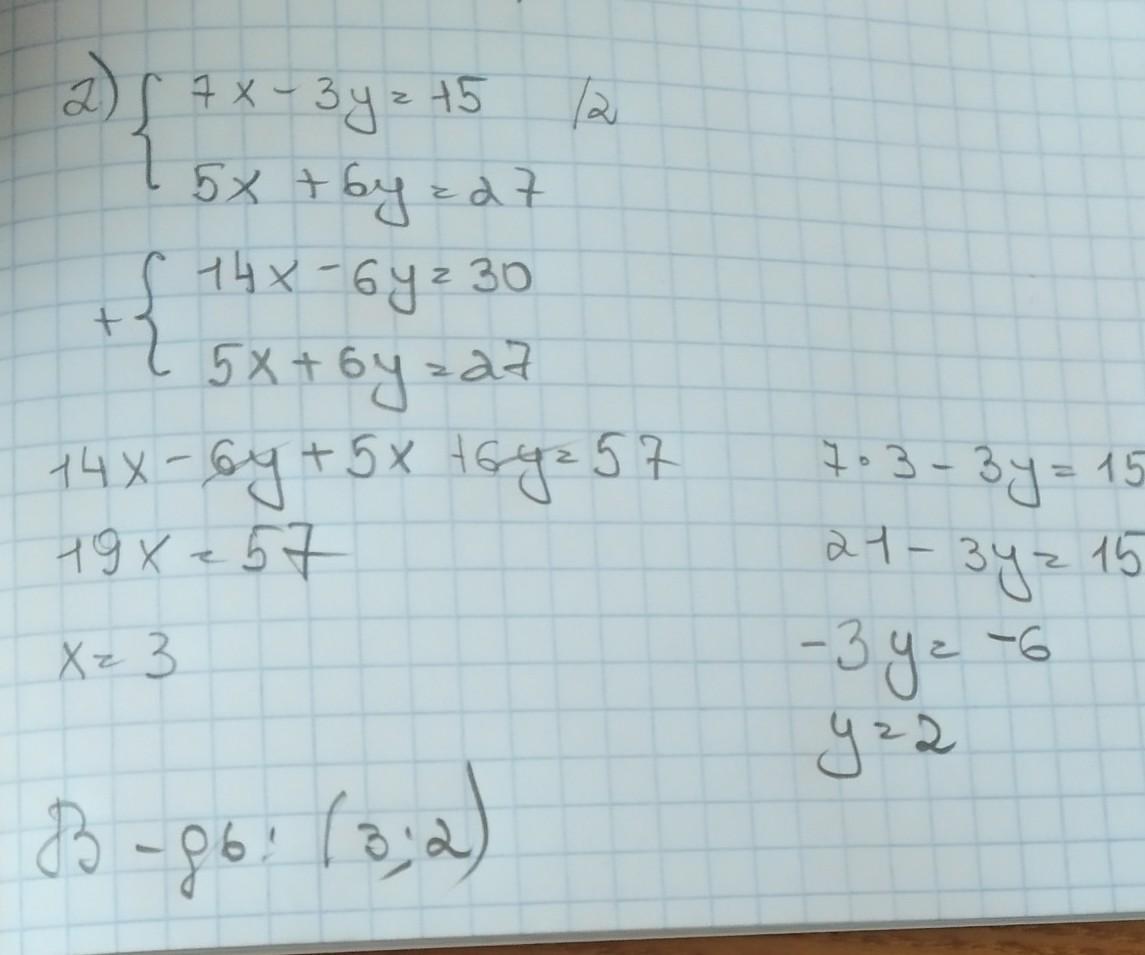 2) { 7x - 3y = 15 /2
5x + 6y = 27
+ { 14x - 6y = 30
5x + 6y = 27
14x - 6y + 5x + 6y = 57
19x = 57
x = 3
7·3 - 3y = 15
21 - 3y = 15
-3y = -6
y = 2
В-дь: (3;2)